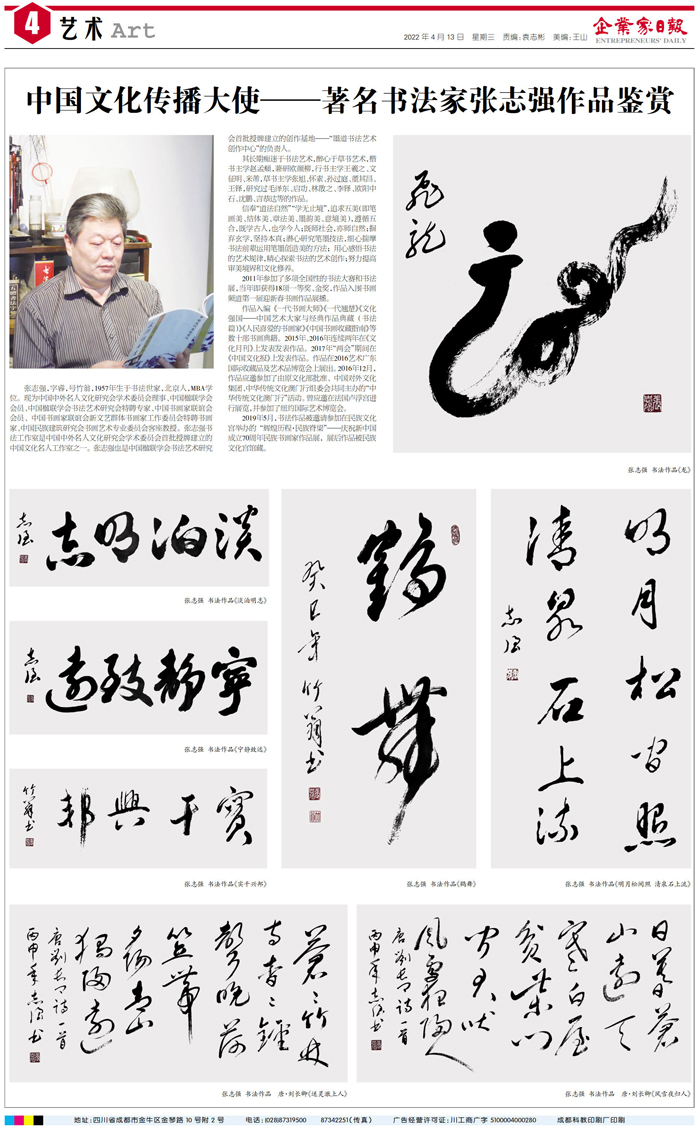 4 艺术 Art
2022 年 4 月 13 日 星期三 责编:袁志彬 美编:王山
企業家日報
ENTREPRENEURS' DAILY
中国文化传播大使——著名书法家张志强作品鉴赏
张志强,字睿,号竹翁,1957年生于书法世家,北京人,MBA学
位。现为中国中外名人文化研究会学术委员会理事、中国楹联学会
会员、中国楹联学会书法艺术研究会特聘专家、中国书画家联谊会
会员、中国书画家联谊会新文艺群体书画家工作委员会特聘书画
家、中国民族建筑研究会书画艺术专业委员会客座教授。张志强书
法工作室是中国中外名人文化研究会学术委员会首批授牌建立的
中国文化名人工作室之一。张志强也是中国楹联学会书法艺术研究
会首批授牌建立的创作基地——“墨道书法艺术
创作中心”的负责人。
其长期痴迷于书法艺术,醉心于草书艺术,楷
书主学赵孟頫,兼研欧颜柳,行书主学王羲之、文
征明、米芾,草书主学张旭、怀素、孙过庭、董其昌、
王铎,研究过毛泽东、启功、林散之、李铎、欧阳中
石、沈鹏、言恭达等的作品。
信奉“道法自然”“学无止境”,追求五美(即笔
画美、结体美、章法美、墨韵美、意境美),遵循五
合,既学古人,也学今人;既师社会,亦师自然;摒
弃玄学,坚持本真;潜心研究笔墨技法,细心揣摩
书法前辈运用笔墨创造美的方法;用心感悟书法
的艺术规律,精心探索书法的艺术创作;努力提高
审美境界和文化修养。
2011年参加了多项全国性的书法大赛和书法
展,当年即获得18项一等奖、金奖,作品入围书画
频道第一届迎新春书画作品展播。
作品入编《一代书画大师》《一代翘楚》《文化
强国——中国艺术大家与经典作品典藏(书法
篇)》《人民喜爱的书画家》《中国书画收藏指南》等
数十部书画典籍。2015年、2016年连续两年在《文
化月刊》上发表发表作品。2017年“两会”期间在
《中国文化报》上发表作品。作品在2016艺术广东
国际收藏品及艺术品博览会上展出。2016年12月,
作品应邀参加了由原文化部批准、中国对外文化
集团、中华传统文化澳门行组委会共同主办的“中
华传统文化澳门行”活动。曾应邀在法国卢浮宫进
行展览,并参加了纽约国际艺术博览会。
2019年5月,书法作品被邀请参加在民族文化
宫举办的“辉煌历程·民族脊梁”——庆祝新中国
成立70周年民族书画家作品展,展后作品被民族
文化宫馆藏。
飛龍
张志强 书法作品《龙》
淡泊明志
志强
张志强 书法作品《淡泊明志》
寧静致遠
志强
张志强 书法作品《宁静致远》
實干興邦
竹翁书
张志强 书法作品《实干兴邦》
鶴舞
癸巳年竹翁书
张志强 书法作品《鹤舞》
明月松间照
清泉石上流
志强
张志强 书法作品《明月松间照 清泉石上流》
蒼蒼竹林
寺杳杳鐘
聲晚荷
笠带
夕陽青山
獨歸遠
唐劉长卿诗一首
丙申年志强书
张志强 书法作品 唐·刘长卿《送灵澈上人》
日暮蒼
山遠天
寒白屋
貧柴门
闻犬吠
風雪夜歸人
唐劉长卿诗一首
丙申年志强书
张志强 书法作品 唐·刘长卿《风雪夜归人》
地址:四川省成都市金牛区金琴路 10 号附 2 号 电话:(028)87319500 87342251(传真) 广告经营许可证:川工商广字 5100004000280 成都科教印刷厂印刷